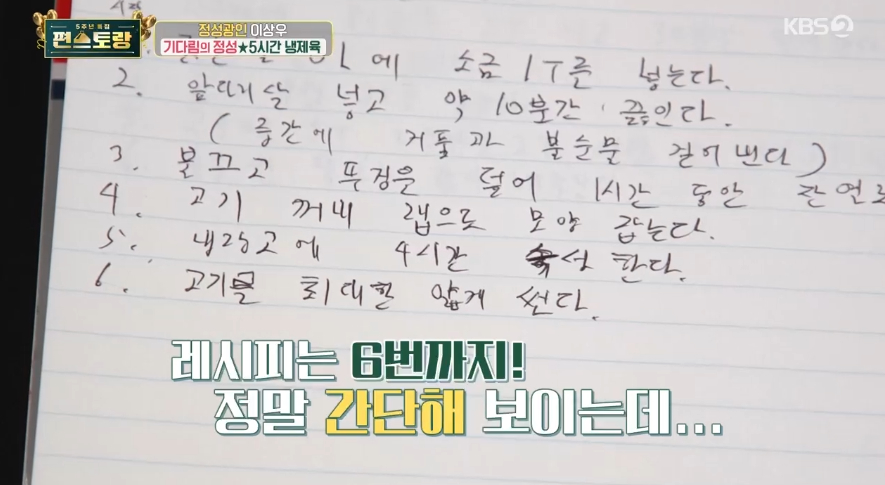 5주년 특집
편스토랑
정성광인 이상우
기다림의 정성★5시간 냉제육
KBS2
시작
L에 소금 1T를 넣는다.
2. 앞다리살 넣고 약 10분간 끓인다.
(중간에 거품과 불순물 걷어낸다)
3. 불끄고 뚜껑을 덮어 1시간 동안
4. 고기 꺼내 랩으로 모양 잡는다.
5. 냉장고에 4시간 숙성 한다.
6. 고기를 최대한 얇게 썬다.
레시피는 6번까지!
정말 간단해 보이는데...